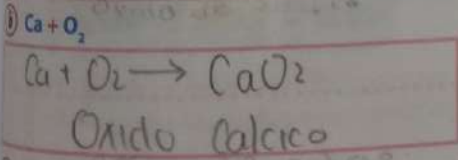 i) Ca + O₂
Ca + O₂ → CaO₂
Oxido Calcico